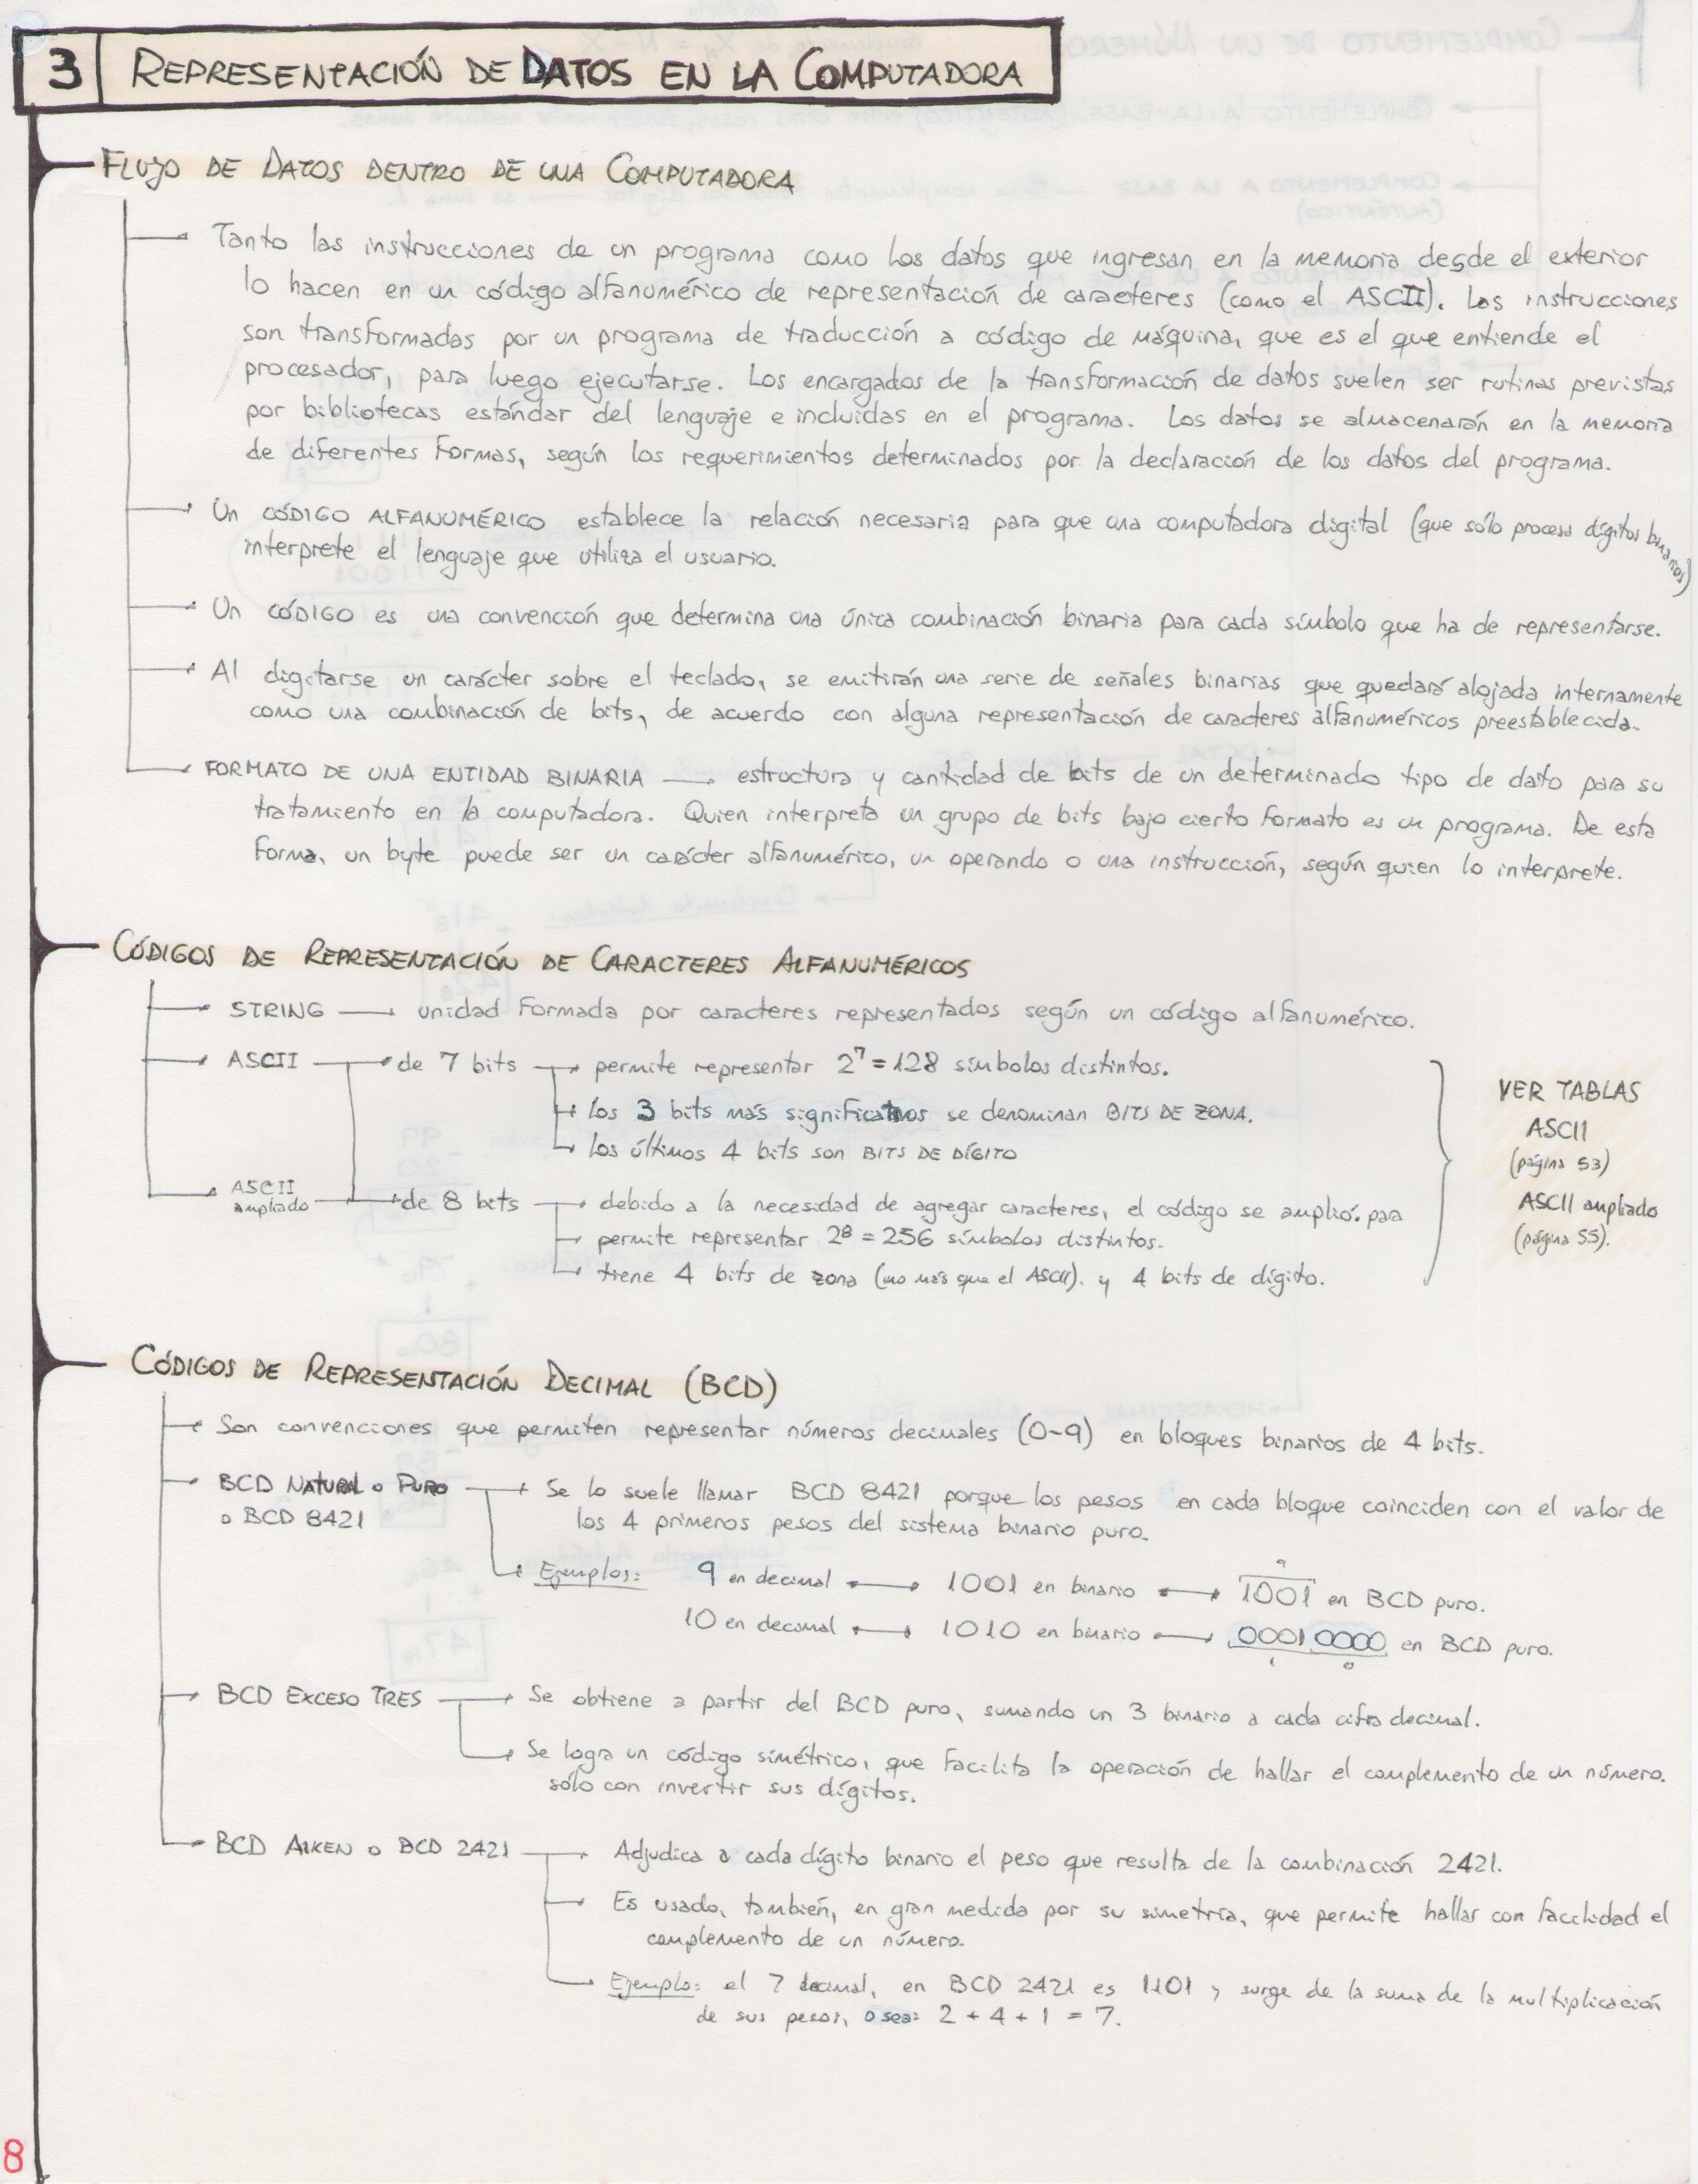 3 REPRESENTACIÓN DE DATOS EN LA COMPUTADORA
FLUJO DE DATOS DENTRO DE UNA COMPUTADORA
Tanto las instrucciones de un programa como los datos que ingresan en la memoria desde el exterior
lo hacen en un código alfanumérico de representación de caracteres (como el ASCII). Las instrucciones
son transformadas por un programa de traducción a código de máquina, que es el que entiende el
procesador, para luego ejecutarse. Los encargados de la transformación de datos suelen ser rutinas previstas
por bibliotecas estándar del lenguaje e incluidas en el programa. Los datos se almacenarán en la memoria
de diferentes formas, según los requerimientos determinados por la declaración de los datos del programa.
Un CÓDIGO ALFANUMÉRICO establece la relación necesaria para que una computadora digital (que sólo procesa dígitos binarios)
interprete el lenguaje que utiliza el usuario.
Un CÓDIGO es una convención que determina una única combinación binaria para cada símbolo que ha de representarse.
Al digitarse un carácter sobre el teclado, se emitirán una serie de señales binarias que quedará alojada internamente
como una combinación de bits, de acuerdo con alguna representación de caracteres alfanuméricos preestablecida.
FORMATO DE UNA ENTIDAD BINARIA → estructura y cantidad de bits de un determinado tipo de dato para su
tratamiento en la computadora. Quien interpreta un grupo de bits bajo cierto formato es un programa. De esta
forma, un byte puede ser un carácter alfanumérico, un operando o una instrucción, según quien lo interprete.
CÓDIGOS DE REPRESENTACIÓN DE CARACTERES ALFANUMÉRICOS
STRING → unidad formada por caracteres representados según un código alfanumérico.
ASCII → de 7 bits → permite representar 2⁷ = 128 símbolos distintos.
los 3 bits más significativos se denominan BITS DE ZONA.
los últimos 4 bits son BITS DE DÍGITO
ASCII ampliado → de 8 bits → debido a la necesidad de agregar caracteres, el código se amplió. para
permite representar 2⁸ = 256 símbolos distintos.
tiene 4 bits de zona (uno más que el ASCII). y 4 bits de dígito.
VER TABLAS
ASCII
(página 53)
ASCII ampliado
(página 55).
CÓDIGOS DE REPRESENTACIÓN DECIMAL (BCD)
Son convenciones que permiten representar números decimales (0-9) en bloques binarios de 4 bits.
BCD NATURAL o PURO → Se lo suele llamar BCD 8421 porque los pesos en cada bloque coinciden con el valor de
o BCD 8421
los 4 primeros pesos del sistema binario puro.
9
Ejemplos: 9 en decimal ↔ 1001 en binario ↔ 1001 en BCD puro.
10 en decimal ↔ 1010 en binario ↔ 00010000 en BCD puro.
1 0
BCD EXCESO TRES → Se obtiene a partir del BCD puro, sumando un 3 binario a cada cifra decimal.
Se logra un código simétrico, que facilita la operación de hallar el complemento de un número.
sólo con invertir sus dígitos.
BCD AIKEN o BCD 2421 → Adjudica a cada dígito binario el peso que resulta de la combinación 2421.
Es usado, también, en gran medida por su simetría, que permite hallar con facilidad el
complemento de un número.
Ejemplo: el 7 decimal, en BCD 2421 es 1101 y surge de la suma de la multiplicación
de sus pesos, o sea: 2 + 4 + 1 = 7.
8